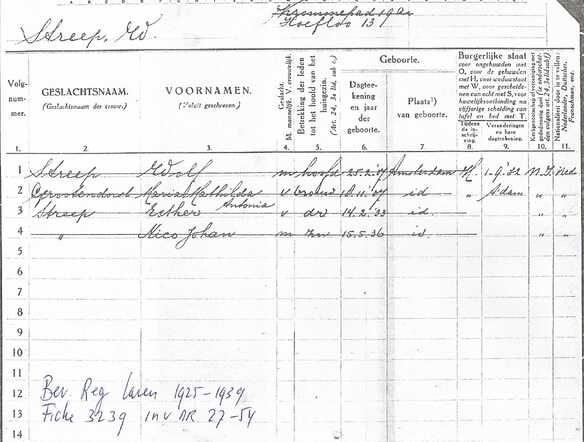 Streep, Ed.
Hoefloo 13
Volg-
num-
mer.
GESLACHTSNAAM.
(Geslachtsnaam der vrouw).
VOORNAMEN.
(Voluit geschreven).
Geslacht.
M. mannelijk, V. vrouwelijk.
Betrekking der leden
tot het hoofd van het
huisgezin.
Geboorte.
Dagtee-
kening
en jaar
der
geboorte.
Plaats¹)
van geboorte.
Burgerlijke staat
voor ongehuwden met
O, voor de gehuwden
met H, voor weduwstaat
met W, voor gescheide-
nen van echt met S, voor
huwelijksontbinding na
vijfjarige scheiding van
tafel en bed met T.
Tijdens
de in-
schrij-
ving.
Veranderingen
en hare
dagteekening.
1. 2. 3. 4. 5. 6. 7. 8. 9. 10. 11.
1 Streep Edolf m hoofd 25.2.'07 Amsterdam H. 1-9-'32 N.I. Ned
2 Grootendorst Maria Mathilda v vrouw 10.11.'07 id " Adam " "
Antonia
3 Streep Esther v dr 14.2.'33 id. " "
4 " Nico Johan m zn 15.5.'36 id. " "
5
6
7
8
9
10
11
12 Bev. Reg Laren 1925-1939
13 Fiche 3239 inv NR 27-54
14